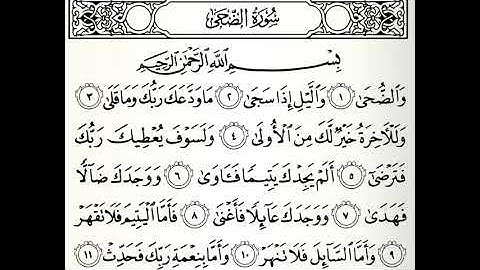 سُورَةُ الضُّحَىٰ
بِسْمِ اللَّهِ الرَّحْمَٰنِ الرَّحِيمِ
وَالضُّحَىٰ ١ وَالَّيْلِ إِذَا سَجَىٰ ٢ مَاوَدَّعَكَ رَبُّكَ وَمَا قَلَىٰ ٣
وَلَلْآخِرَةُ خَيْرٌ لَّكَ مِنَ الْأُولَىٰ ٤ وَلَسَوْفَ يُعْطِيكَ رَبُّكَ
فَتَرْضَىٰ ٥ أَلَمْ يَجِدْكَ يَتِيمًا فَـَٔاوَىٰ ٦ وَوَجَدَكَ ضَآلًّا
فَهَدَىٰ ٧ وَوَجَدَكَ عَآئِلًا فَأَغْنَىٰ ٨ فَأَمَّا الْيَتِيمَ فَلَا تَقْهَرْ
٩ وَأَمَّا السَّآئِلَ فَلَا تَنْهَرْ ١٠ وَأَمَّا بِنِعْمَةِ رَبِّكَ فَحَدِّثْ ١١